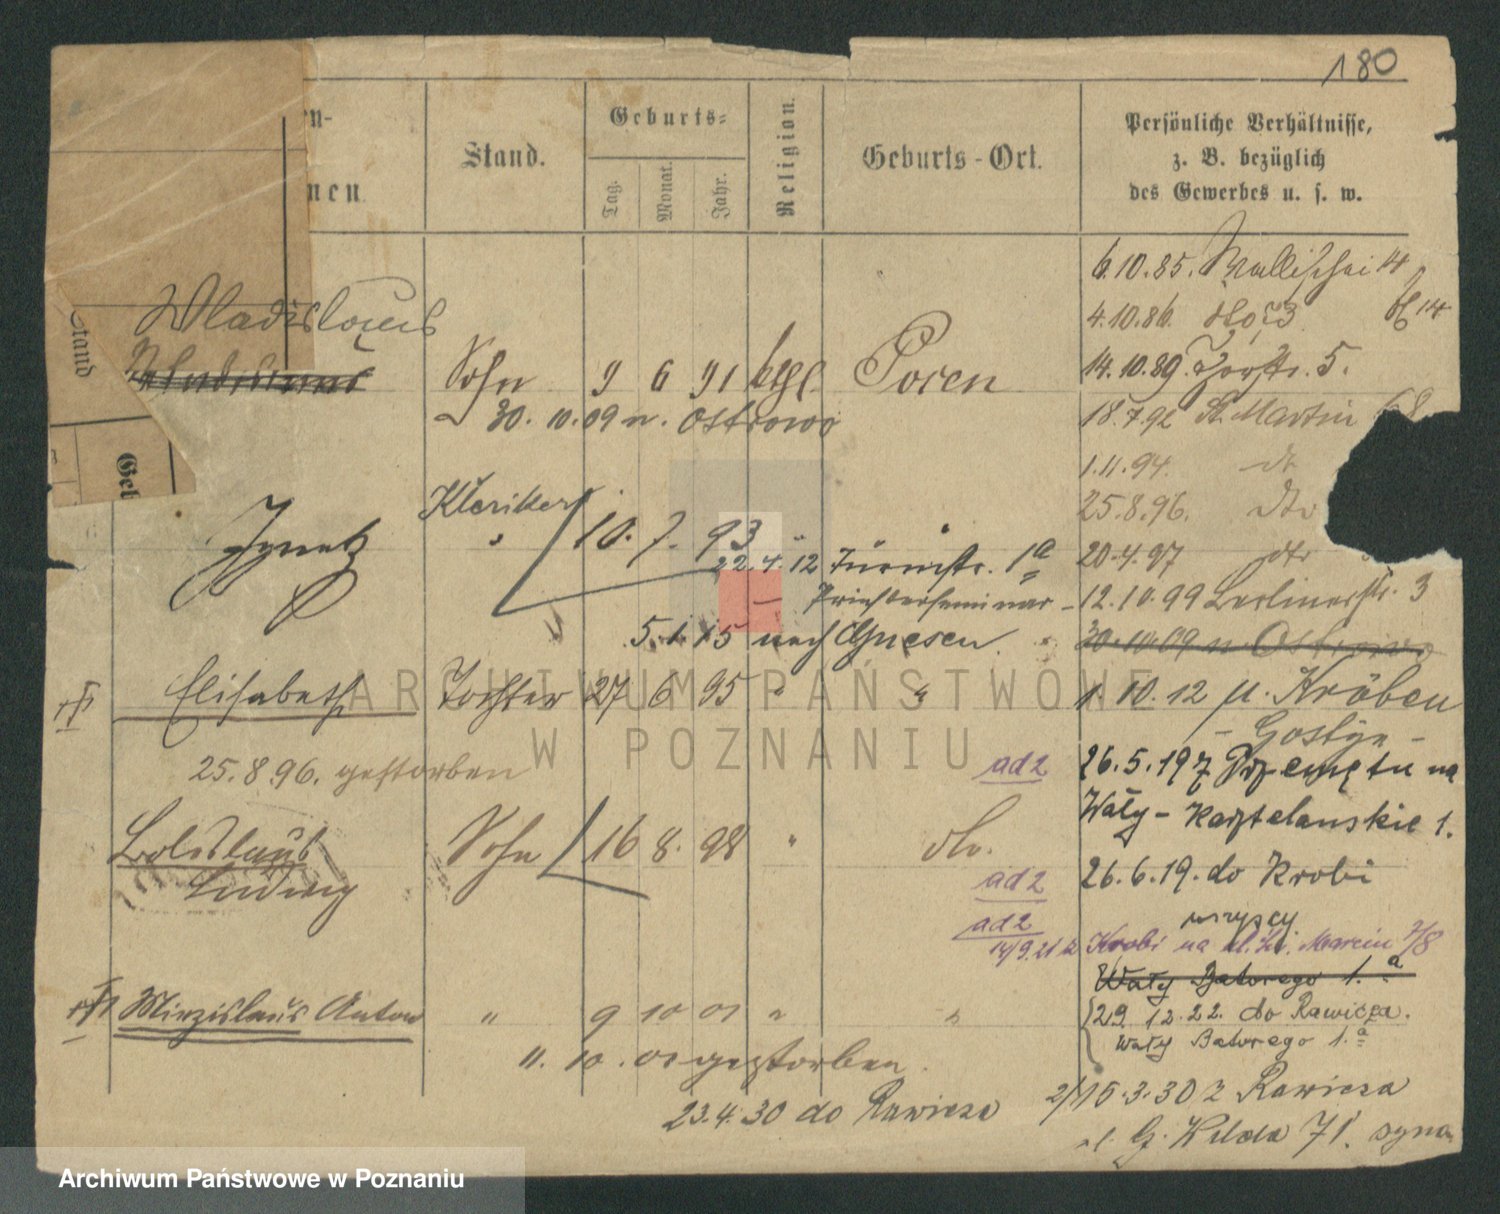 180
en-
nen.
Stand.
Geburts-
Tag.
Monat.
Jahr.
Religion.
Geburts-Ort.
Persönliche Verhältnisse,
z. B. bezüglich
des Gewerbes u. s. w.
Stand
Gel
6.10.85. Wallischei 14
4.10.86. dto 73 14
Wladislaus
Sohn 9 6 91 kthl. Posen
14.10.89. Thorstr. 5.
30. 10. 09 n. Ostrowo
18.7.92 St. Martin 68
1.11.94. dto
Kleriker
25.8.96. dto
Ignatz " 10. 7. 93 " "
20.4.97 dto
22.4.12 Turmstr. 1a
Priesterseminar
12.10.99 Berlinerstr. 3
5.1.15 nach Gnesen.
30.10.09 n Ostrowo
Elisabeth Tochter 27 6 95 " "
1. 10. 12 n. Kröben
- Gostyn -
25.8.96. gestorben
ad 2 26.5.19 z Przemętu na
Wały-Kasztelanskie 1.
Boleslaus Sohn 16 8. 98 " dto.
Ludwig
ad 2 26.6.19. do Krobi
wszyscy
ad 2
14/9.21 z Krobi na ul. Św. Marcin 7/8
Wały Batorego 1.a
Miezislaus Anton " 9 10 01 " "
29 12.22. do Rawicza.
Wały Batorego 1.a
11. 10. 01 gestorben.
23.4.30 do Rawicza
2/15.3.30 z Rawicza
ul. G. Wilda 71. syna
ARCHIWUM PAŃSTWOWE
W POZNANIU
Archiwum Państwowe w Poznaniu